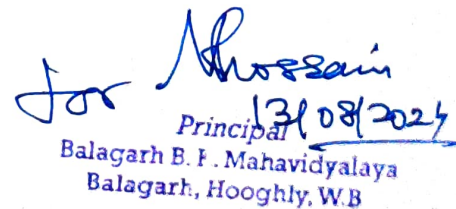 for NHossain
13/08/2024
Principal
Balagarh B. K. Mahavidyalaya
Balagarh, Hooghly, W.B